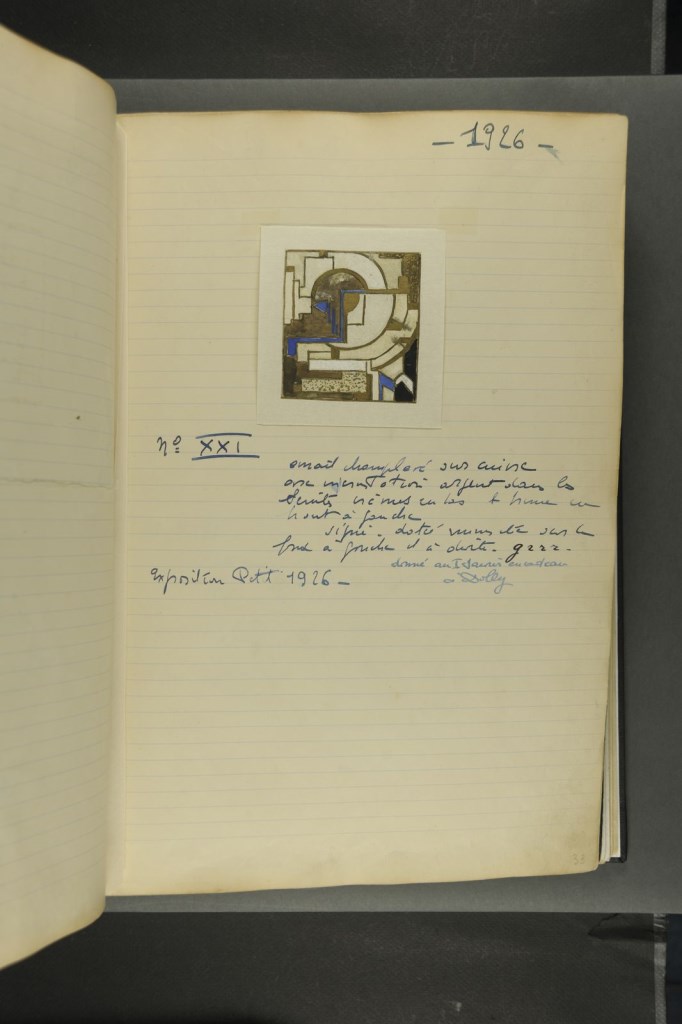 – 1926 –
Nº XXI
émail champlevé sur cuivre
avec incrustation argent dans les
crèmes en bas & brune en
haut à gauche
signé - daté numéroté sur le
fond à gauche et à droite. g222.
donné au I Janvier en cadeau
à Dolly
Exposition Petit 1926 –
33